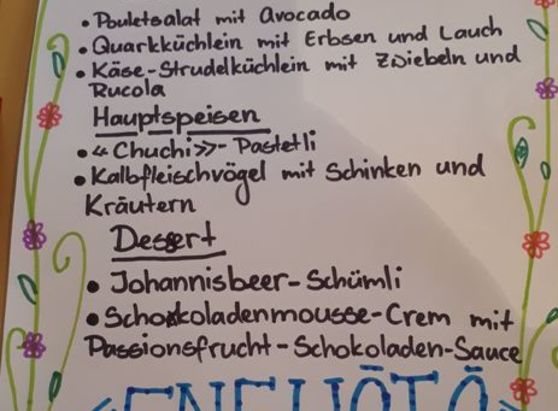 • Pouletsalat mit Avocado
• Quarkküchlein mit Erbsen und Lauch
• Käse-Strudelküchlein mit Zwiebeln und
Rucola
Hauptspeisen
• «Chuchi»-Pastetli
• Kalbfleischvögel mit Schinken und
Kräutern
Dessert
• Johannisbeer-Schümli
• Schokoladenmousse-Crem mit
Passionsfrucht-Schokoladen-Sauce